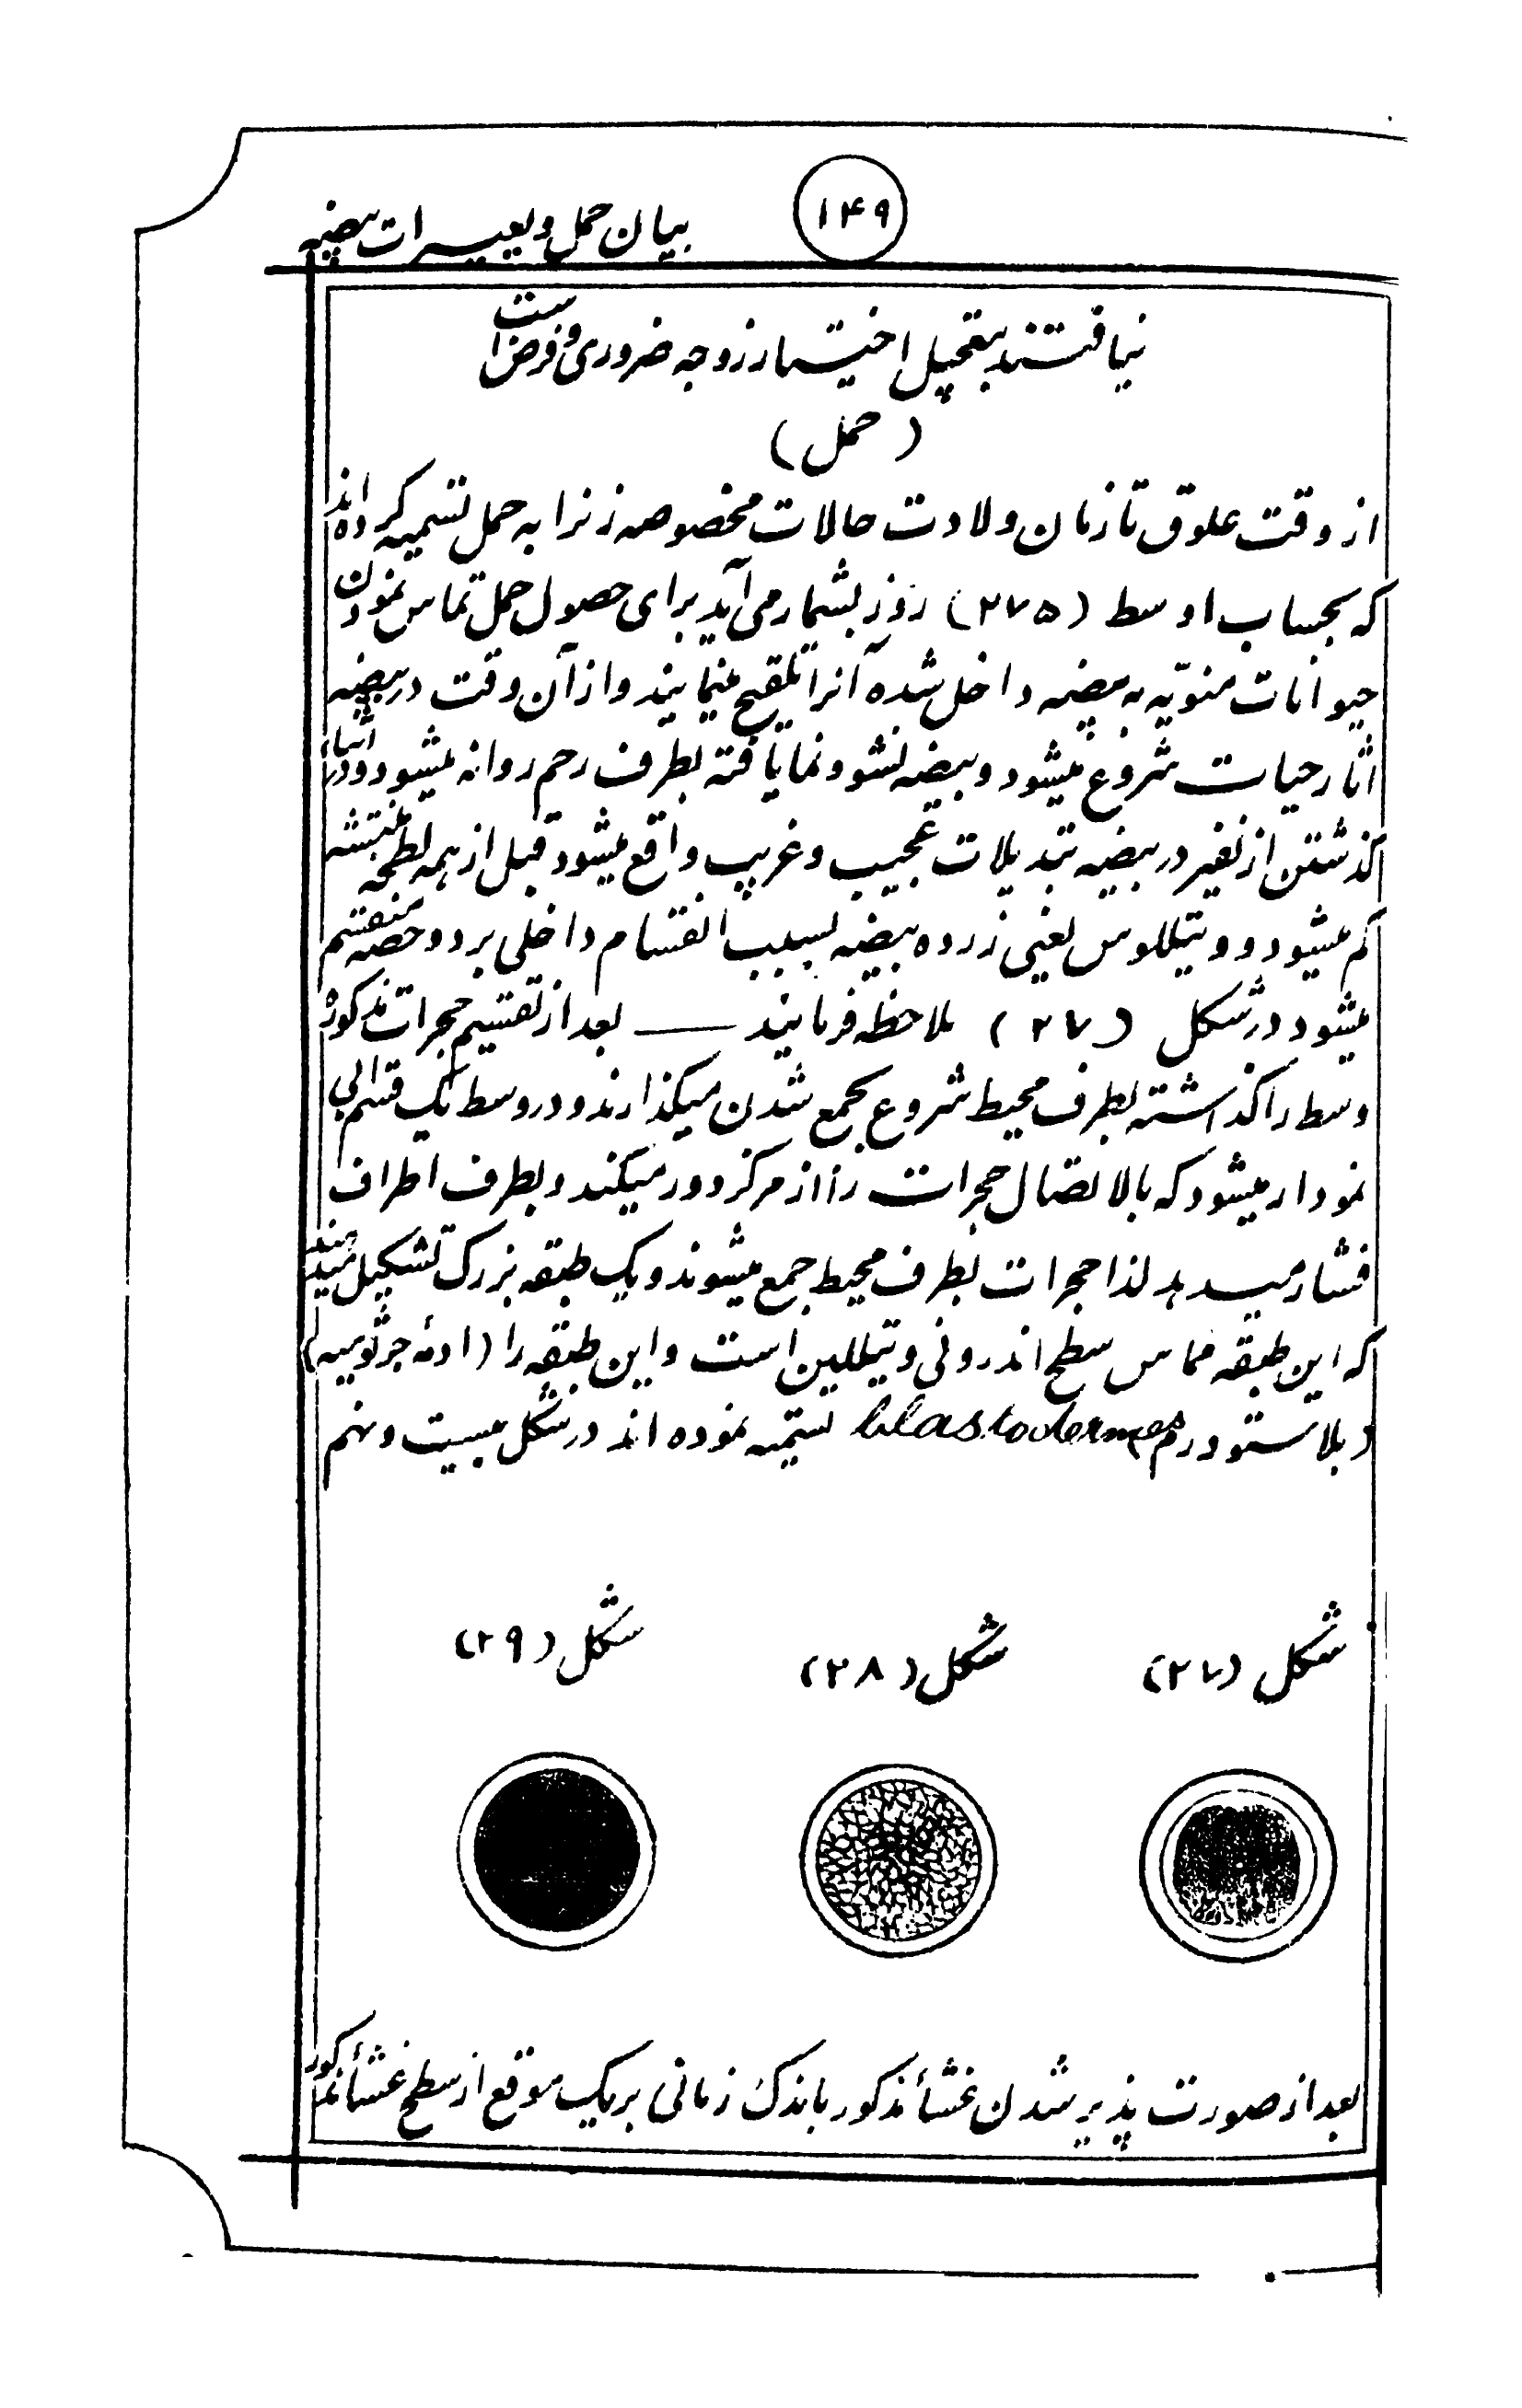 ۱۴۹
بیان حمل و تغییرات بیضه
نیافتند بتعجیل اختیار زوجه ضروری و فرض است
( حمل )
از وقت علوق تا زمان ولادت حالات مخصوصه زنرا به حمل تسمیه کرده اند
که بحساب اوسط ( ۲۷۵ ) روز بشمار می آید برای حصول حمل تماس نمودن
حیوانات منویّه به بیضه داخل شده آنرا تلقیح مینمایند و از آن وقت در بیضه
آثار حیات شروع میشود و بیضه نشو و نما یافته بطرف رحم روانه میشود و در اثناء
گذشتن از نفیر در بیضه تبدیلات عجیب و غریب واقع میشود قبل از همه لطخه منبتشه
گم میشود و ویتللوس یعنی زرده بیضه بسبب انقسام داخلی بر دو حصه منقسم
میشود در شکل ( ۲۷ ) ملاحظه فرمایند —— بعد از تقسیم حجرات مذکوره
وسط را گذاشته بطرف محیط شروع بجمع شدن میگذارند و در وسط یک قسم آبی
نمودار میشود که بالاتصال حجرات را از مرکز دور میکند و بطرف اطراف
فشار میدهد لذا حجرات بطرف محیط جمع میشوند و یک طبقه بزرگ تشکیل میدهند
که این طبقه مماس سطح اندرونی ویتللین است و این طبقه را ( ادمهٔ جرثومیه )
( بلاستودرم ) blastodermes تسمیه نموده اند در شکل بیست و نهم
شکل (۲۷)
شکل (۲۸)
شکل (۲۹)
بعد از صورت پذیر شدن غشأ مذکور باندک زمانی بر یک موقع از سطح غشأ مذکور